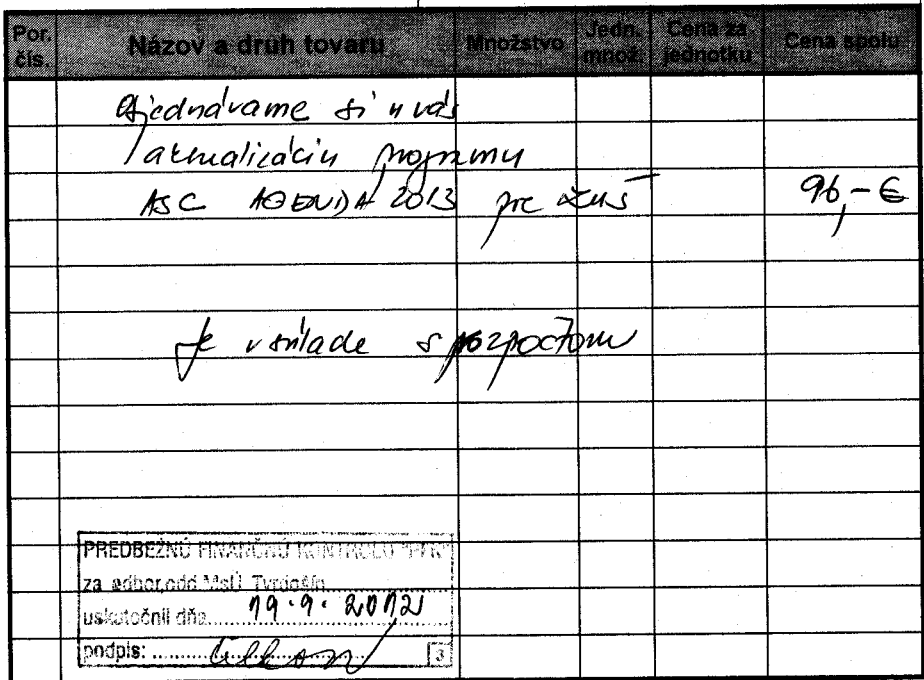 Por. čís. Názov a druh tovaru Množstvo Jedn. množ. Cena za jednotku Cena spolu
Objednávame si u vás
aktualizáciu programu
ASC AGENDA 2013 pre ZUŠ 96,- €
Je v súlade s rozpočtom
PREDBEŽNÚ FINANČNÚ KONTROLU
za odbor, odd MsÚ Tvrdošín
uskutočnil dňa 19.9.2012
podpis:
3